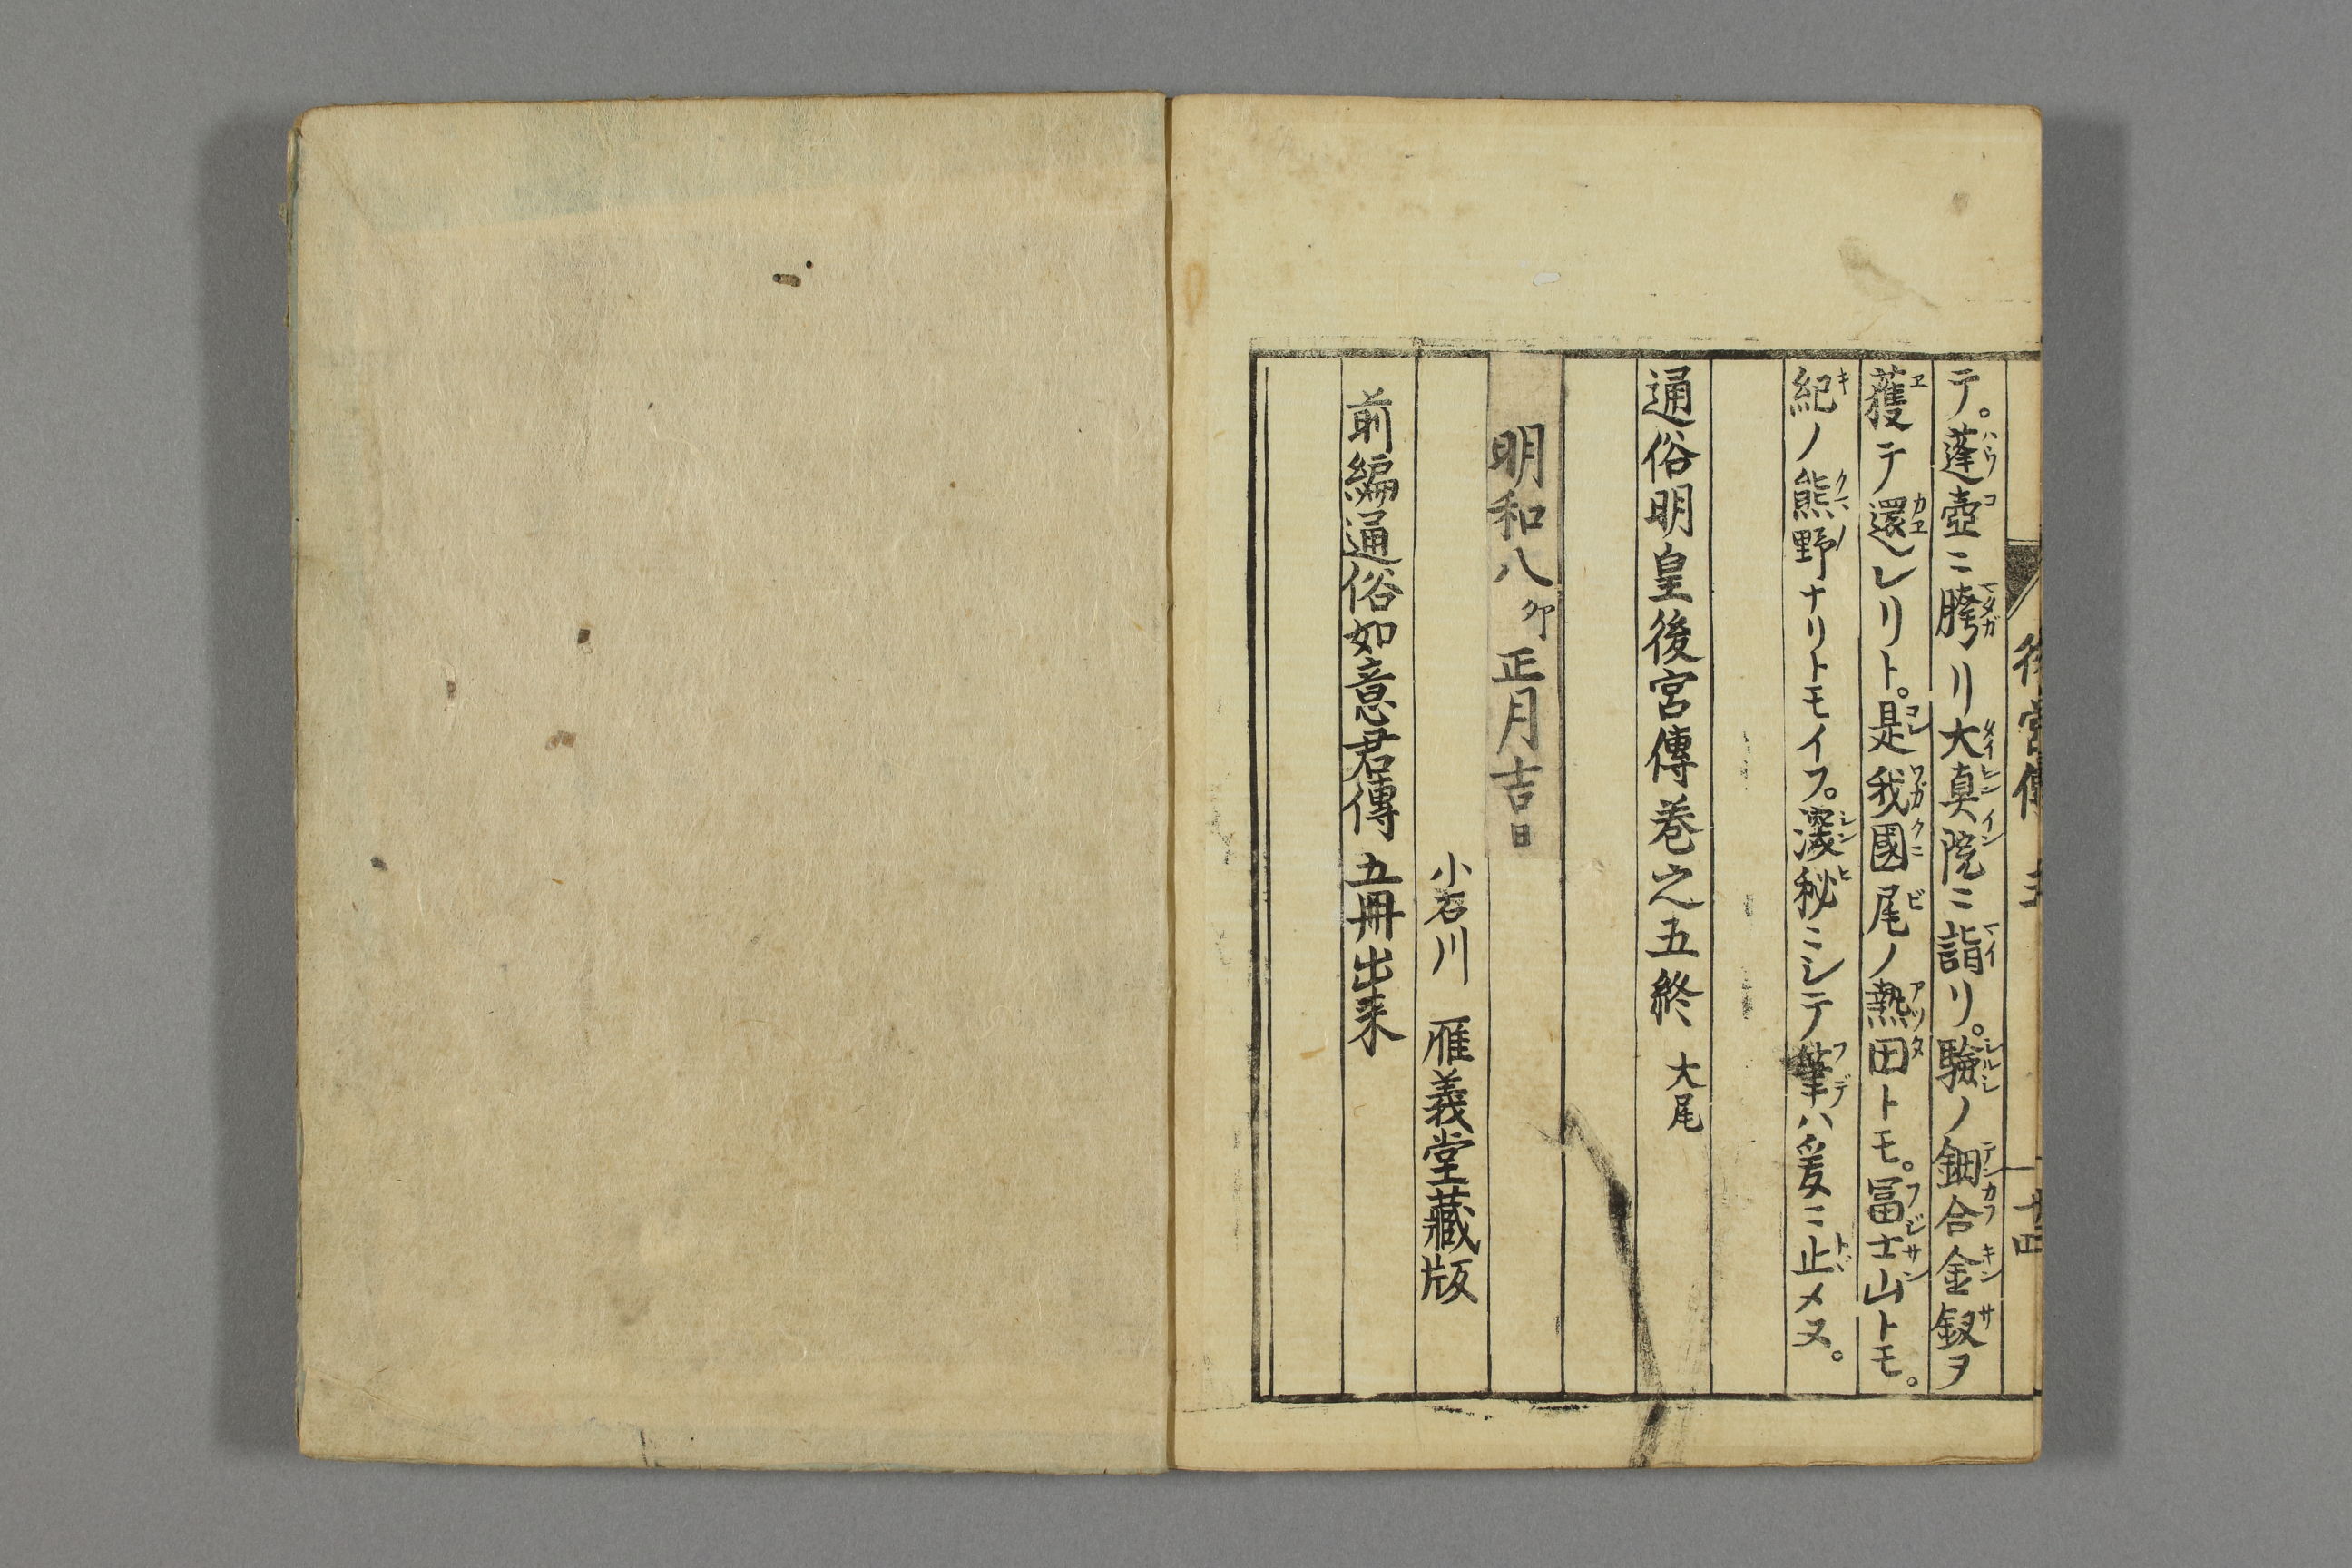 後宮傳 五 廿四
テ。蓬壺ニ胯リ大真院ニ詣リ。驗ノ鈿合金釵ヲ
獲テ還レリト。是我國尾ノ熱田トモ。冨士山トモ。
紀ノ熊野ナリトモイフ。深秘ニシテ筆ハ爰ニ止メヌ。
通俗明皇後宮傳巻之五終 大尾
明和八卯正月吉日
小石川 雁義堂藏版
前編通俗如意君傳 五冊出来